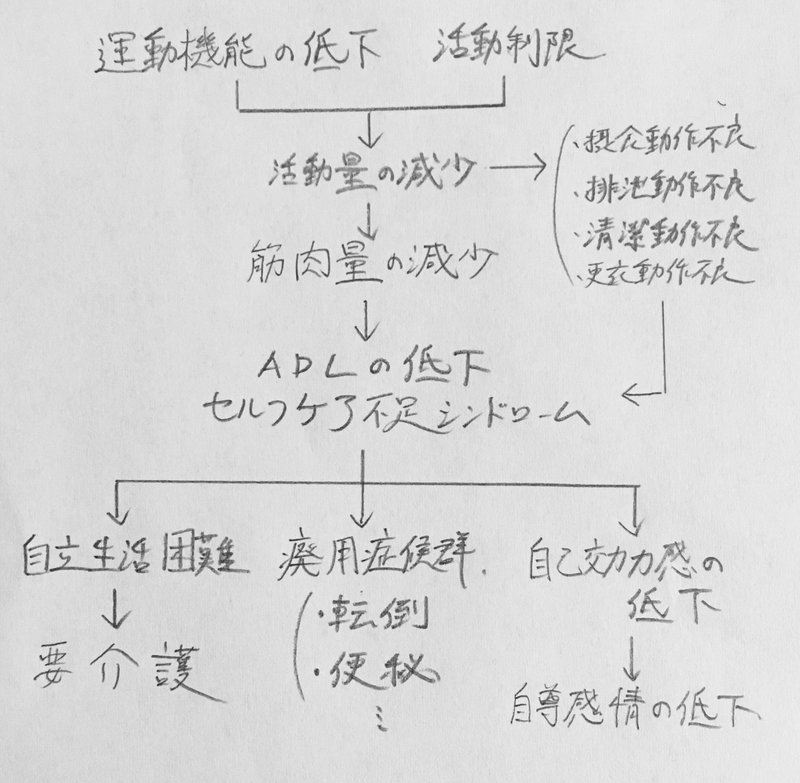 運動機能の低下　活動制限
活動量の減少
・摂食動作不良
・排泄動作不良
・清潔動作不良
・更衣動作不良
筋肉量の減少
ADLの低下
セルフケア不足シンドローム
自立生活困難
要介護
廃用症候群
・転倒
・便秘
⋮
自己効力感の
低下
自尊感情の低下